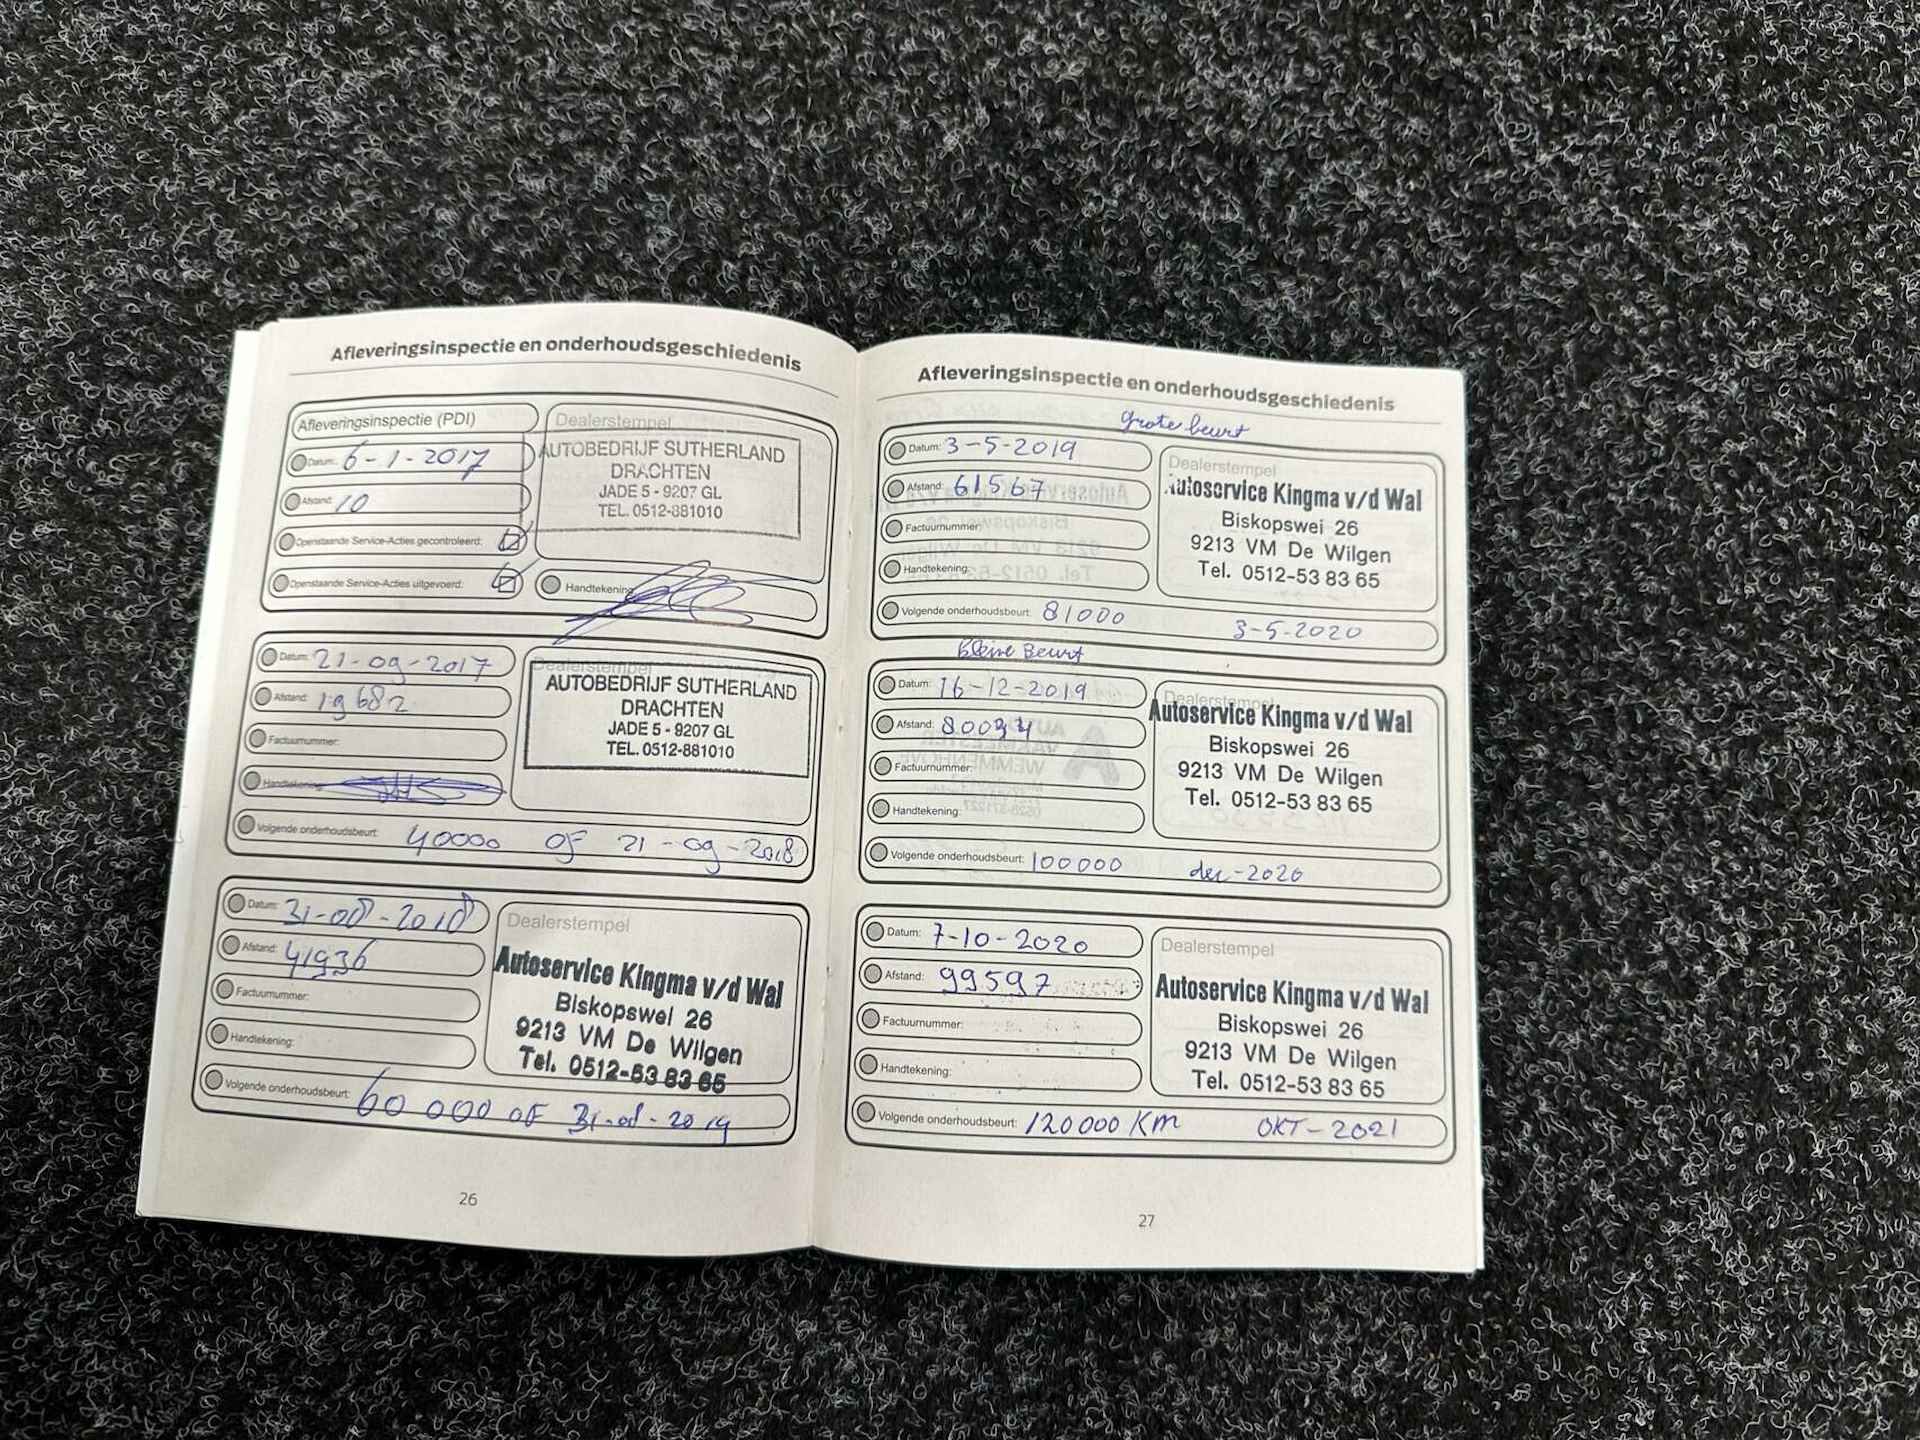 Afleveringsinspectie en onderhoudsgeschiedenis
Afleveringsinspectie (PDI)
Datum: 6-1-2017
Afstand: 10
Openstaande Service-Acties gecontroleerd:
Openstaande Service-Acties uitgevoerd:
Dealerstempel
AUTOBEDRIJF SUTHERLAND
DRACHTEN
JADE 5 - 9207 GL
TEL. 0512-881010
Handtekening
Datum: 21-09-2017
Afstand: 19682
Factuurnummer:
Handtekening:
Dealerstempel
AUTOBEDRIJF SUTHERLAND
DRACHTEN
JADE 5 - 9207 GL
TEL. 0512-881010
Volgende onderhoudsbeurt: 40000 OF 21-09-2018
Datum: 31-08-2018
Afstand: 41936
Factuurnummer:
Handtekening:
Dealerstempel
Autoservice Kingma v/d Wal
Biskopswei 26
9213 VM De Wilgen
Tel. 0512-53 83 65
Volgende onderhoudsbeurt: 60 000 OF 31-08-2019
26
Afleveringsinspectie en onderhoudsgeschiedenis
grote beurt
Datum: 3-5-2019
Afstand: 61567
Factuurnummer:
Handtekening:
Dealerstempel
Autoservice Kingma v/d Wal
Biskopswei 26
9213 VM De Wilgen
Tel. 0512-53 83 65
Volgende onderhoudsbeurt: 81000 3-5-2020
kleine Beurt
Datum: 16-12-2019
Afstand: 80034
Factuurnummer:
Handtekening:
Dealerstempel
Autoservice Kingma v/d Wal
Biskopswei 26
9213 VM De Wilgen
Tel. 0512-53 83 65
Volgende onderhoudsbeurt: 100000 dec-2020
Datum: 7-10-2020
Afstand: 99597
Factuurnummer:
Handtekening:
Dealerstempel
Autoservice Kingma v/d Wal
Biskopswei 26
9213 VM De Wilgen
Tel. 0512-53 83 65
Volgende onderhoudsbeurt: 120000 KM OKT-2021
27